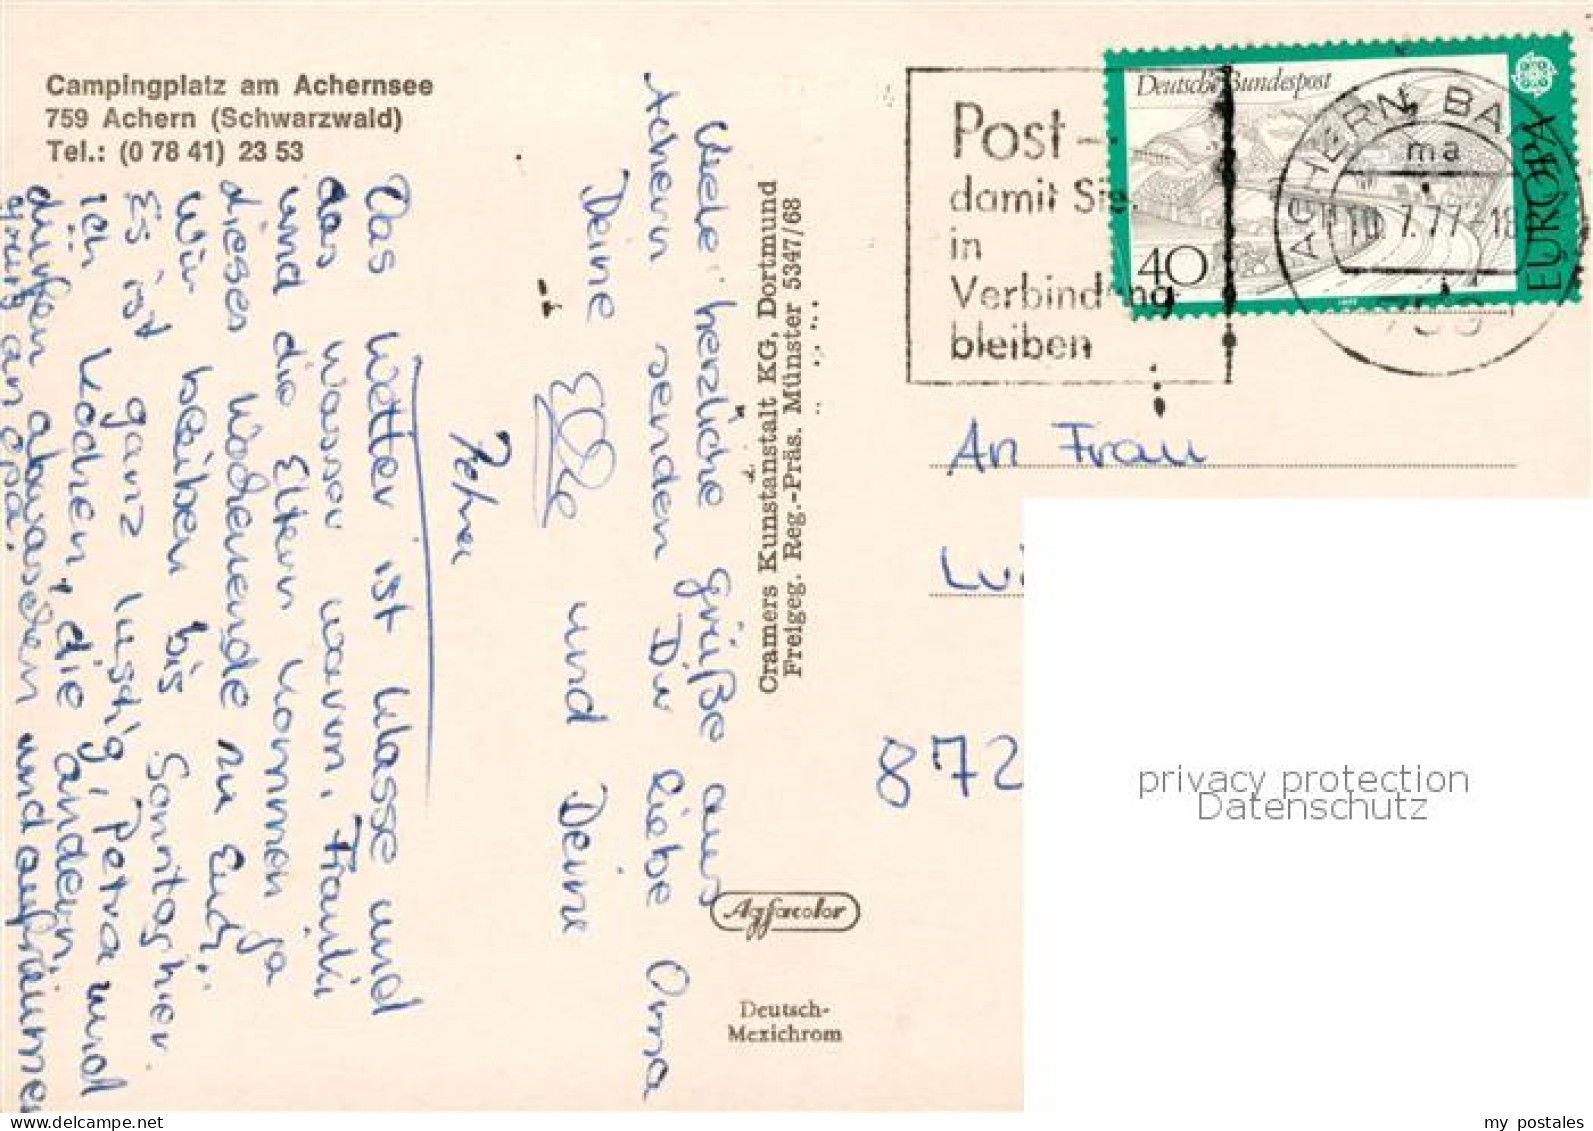 Campingplatz am Achernsee
759 Achern (Schwarzwald)
Tel.: (0 78 41) 23 53
Viele herzliche Grüße aus
Achern senden Dir liebe Oma
Deine Elke und Deine
Petra
Das Wetter ist klasse und
das Wasser warm. Frauki
und die Eltern kommen ja
dieses Wochenende zu Euch.
Wir bleiben bis Sonntag hier.
Es ist ganz lustig, Petra und
ich kochen, die andern
dürfen abwaschen und aufräumen
Gruß an Opa.
Cramers Kunstanstalt KG, Dortmund
Freigeg. Reg.-Präs. Münster 5347/68
Agfacolor
Deutsch-
Mexichrom
Post -
damit Sie
in
Verbindung
bleiben
Deutsche Bundespost
40
EUROPA
1977
ACHERN, BA
ma
10.7.77-18
759
An Frau
872
privacy protection
Datenschutz
www.ansichtskartenversand.com
my postales